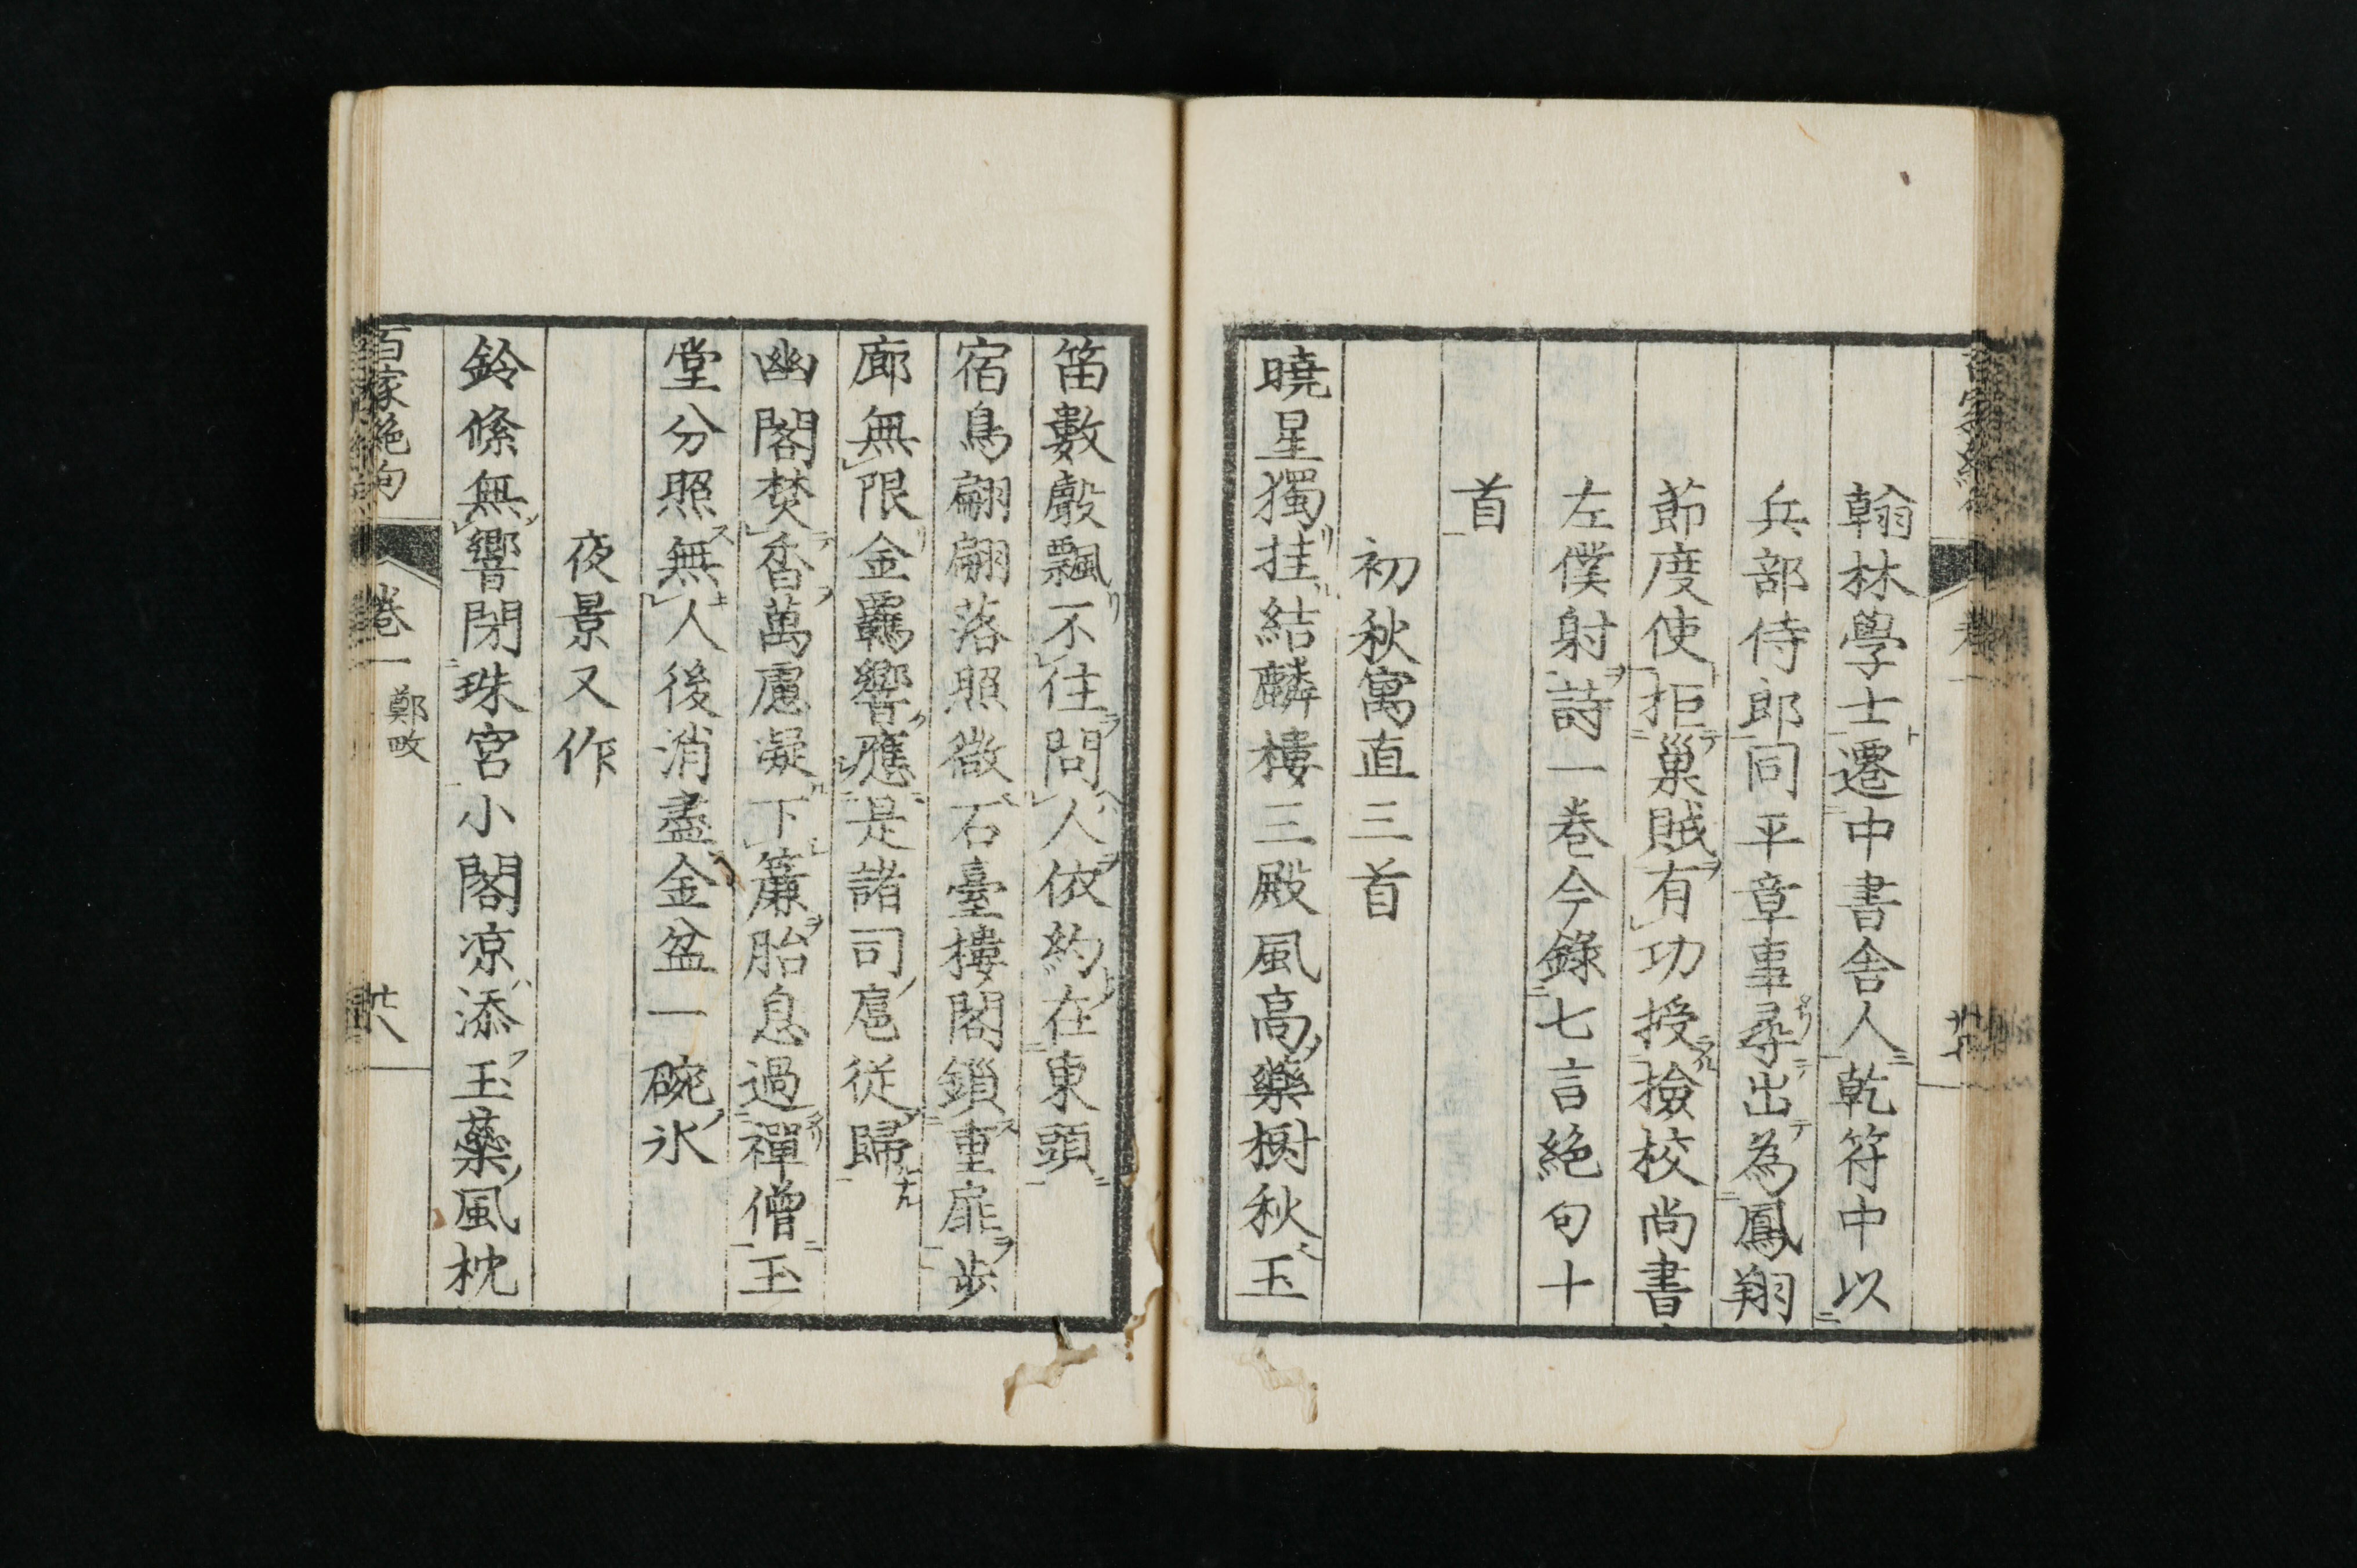 翰林學士遷中書舎人乾符中以
兵部侍郎同平章事尋出為鳳翔
節度使拒巢賊有功授撿校尚書
左僕射詩一卷今錄七言絶句十
首
初秋寓直三首
曉星獨挂結麟樓三殿風高藥樹秋玉
笛數聲飄不住問人依約在東頭
宿鳥翩翩落照微石臺樓閣鎖重扉步
廊無限金羈響應是諸司扈従歸
幽閣焚香萬慮凝下簾胎息過禪僧玉
堂分照無人後消盡金盆一碗氷
夜景又作
鈴絛無響閉珠宮小閣凉添玉藥風枕
百家絶句
卷一
鄭畋
廿八